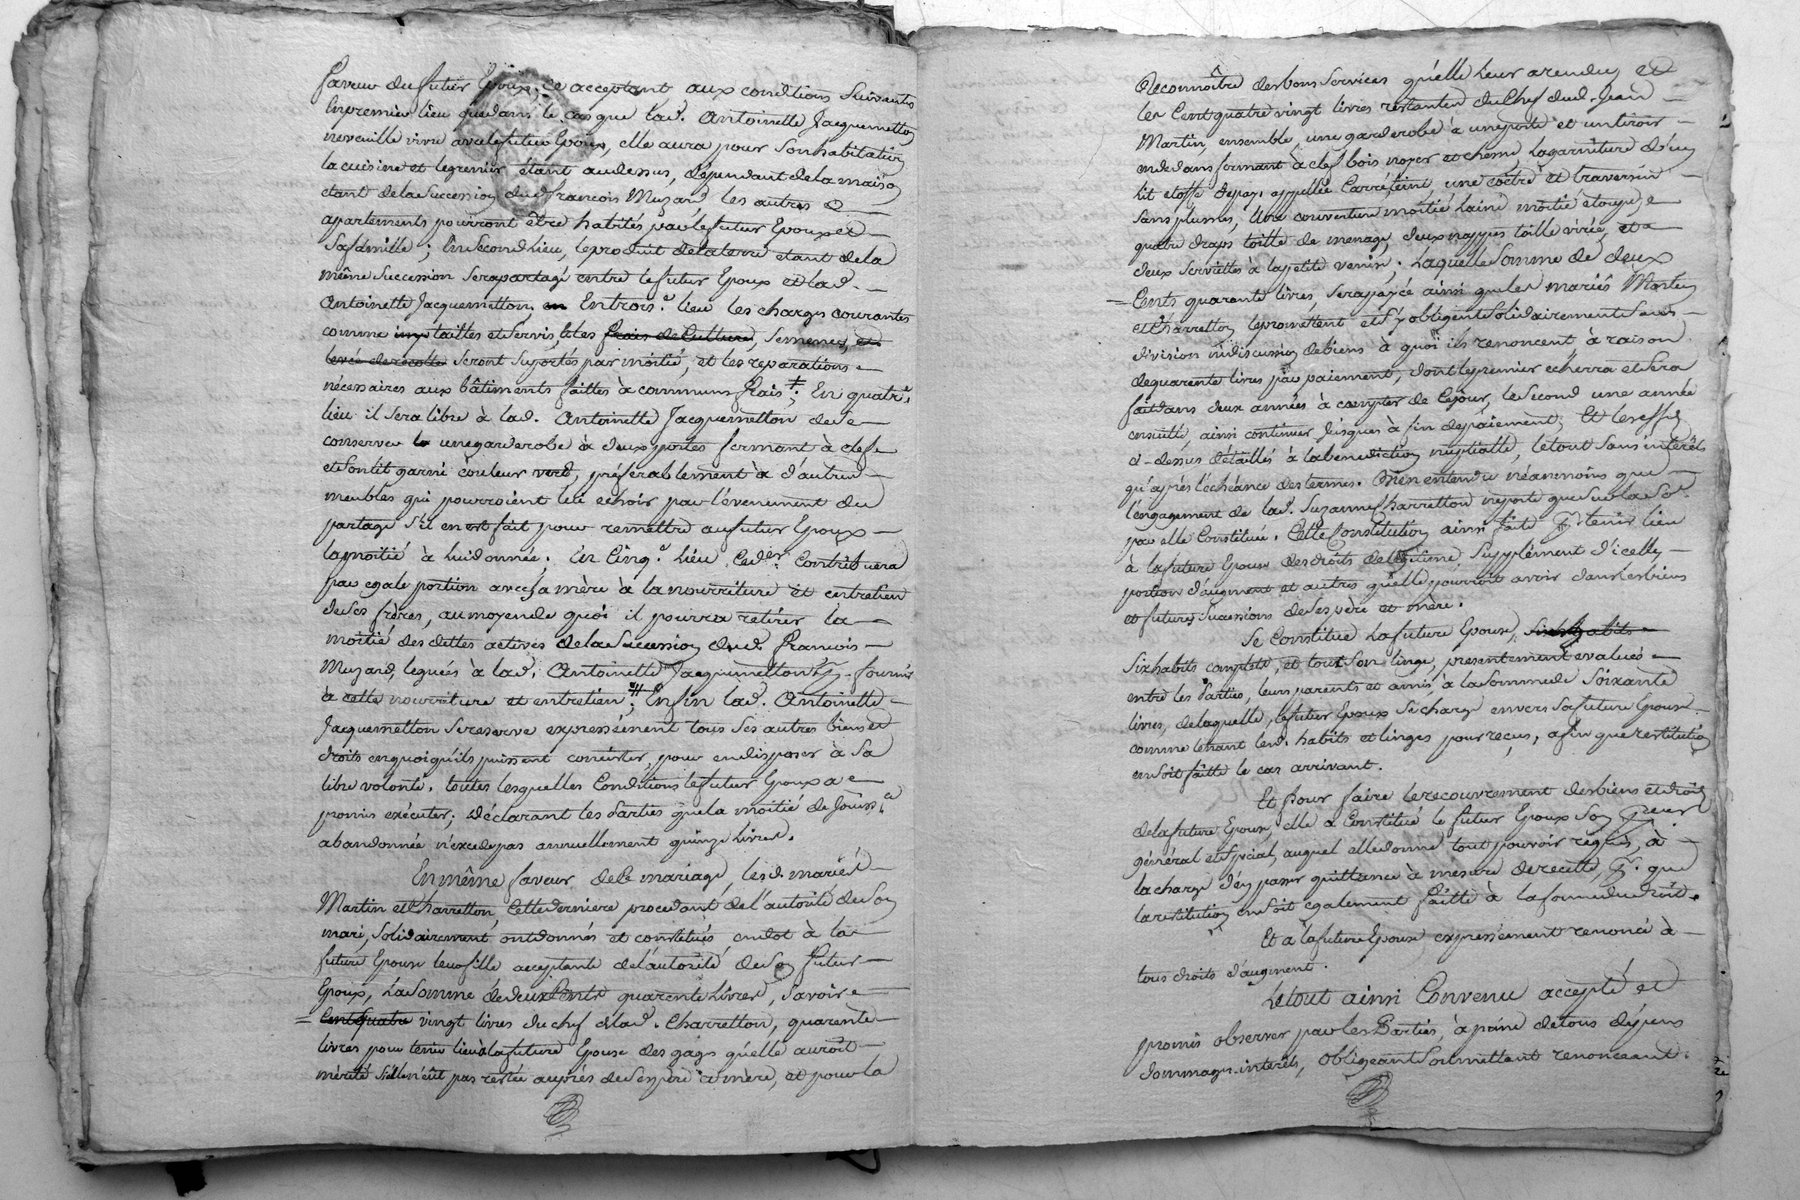 faveur du futur Epoux, ce acceptant aux conditions suivantes
En premier lieu que dans le cas que lad. Antoinette Jacquemetton
ne veuille vivre avec le futur Epoux, elle aura pour son habitation
la cuisine et le grenier étant au dessus, dépendant de la maison
étant de la succession dud. françois Muzard les autres
appartements pourront être habités par le futur Epoux et
sa famille ; En second lieu, le produit de la terre étant de la
même succession sera partagé entre le futur Epoux et lad.
Antoinette Jacquemetton, en Entrois.e lieu les charges courantes
comme tailles et servis, et les frais de Culture, semences, et
levée de recolte seront suportés par moitié, et les reparations
nécessaires aux bâtiments faittes à communs frais ; En quatr.e
lieu il sera libre à lad. Antoinette Jacquemetton de
conserver une garderobe à deux portes fermant à clef
et son lit garni couleur verd, préférablement à d'autres
meubles qui pourroient lui echoir par l'évenement du
partage s'il en est fait pour remettre au futur Epoux
la moitié à lui donnée ; En Cinq.e Lieu Ced.er Contribuera
par egale portion avec sa mère à la nourriture et entretien
de ses frères, au moyen de quoi il pourra retirer la
moitié des dettes actives de la succession dud. françois
Muzard, legués à lad. Antoinette Jacquemetton fournir
à cette nourriture et entretien ; Enfin lad. Antoinette
Jacquemetton se reserve expressément tous ses autres biens et
droits en quoi qu'ils puissent consister, pour en disposer à sa
libre volonté. toutes lesquelles Conditions le futur Epoux a
promis exécuter ; Déclarant les Parties que la moitié de Jouiss.ce
abandonnée n'excede pas annuellement quinze Livres.
En même faveur de ce mariage lesd. mariés
Martin et Charretton, cette derniere procedant de l'autorité de son
mari, solidairement ont donnés et constitués en dot à la
future Epouse leur fille acceptante de l'autorité de son futur
Epoux, la somme de deux Cents quarente Livres, savoir
Cent quatre vingt livres du chef de lad. Charretton, quarente
livres pour tenir lieu à la future Epouse des gages qu'elle auroit
mérité si elle n'eut pas restée auprès de ses père et mère, et pour la
Reconnoître des bons services qu'elle leur a rendu, et
les Cent quatre vingt livres restantes du Chef dud. Jean
Martin, ensemble une garderobe à une porte et un tiroir
en dedans fermant à clef bois noyer et chesne, la garniture d'un
lit etoffe de pays appellée Carré peint, une coëtre et traversin
sans plumes, une couverture moitié laine moitié étoupe,
quatre draps toille de menage, deux nappes toille virée, et
deux serviettes à la petite venise ; Laquelle somme de deux
Cents quarante livres, sera payée ainsi que les mariés Martin
et Charretton le promettent et s'y obligent solidairement sans
division ni discussion de biens à quoi ils renoncent, à raison
de quarente livres par paiement, dont le premier echerra et sera
fait dans deux années à compter de ce jour, le second une année
ensuitte, ainsi continuer jusques à fin de paiement ; Et les effets
ci-dessus détaillés à la bénédiction nuptialle, le tout sans intérêts
qu'après l'échéance des termes. Bien entendu néanmoins que
l'engagement de lad. Suzanne Charretton ne porte que sur la So.e
par elle Constituée. Cette Constitution ainsi faite pr. tenir lieu
à la future Epouse des droits de légitime, supplément d'icelle,
portion d'augment et autres qu'elle pourroit avoir dans les biens
et futures successions de ses père et mère.
Se Constitue La future Epouse, six habits
six habits complets, et tout son linge, présentement evalués
entre les Parties, leurs parents et amis, à la somme de soixante
livres, de laquelle, le futur Epoux se charge envers sa future Epouse
comme tenant lesd. habits et linges pour reçus, afin que restitution
en soit faitte le cas arrivant.
Et Pour faire le recouvrement des biens et droits
de la future Epouse, elle a Constitué le futur Epoux son Preur
général et special, auquel elle donne tout pouvoir requis, à
la charge d'en passer quittance à mesure de recette, pr. que
la restitution en soit egalement faitte à la forme du droit.
Et a la future Epouse expressément renoncé à
tous droits d'augment.
Le tout ainsi Convenu accepté et
promis observer par les Parties, à peine de tous dépens
dommages-intérêts, obligeant soumettant renonceant.